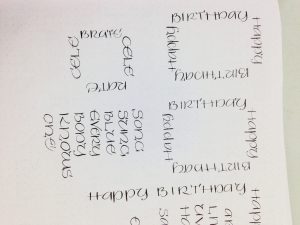 Happy
BIRTHDAY
Happy
BIRTHDAY
CELE
BRATE
CELE
BRATE
Happy
BIRTHDAY
Happy
BIRTHDAY
SONG
SUNG
BLUE
EVERY
BODY
KNOWS
ONE
Happy
BIRTHDAY
Happy